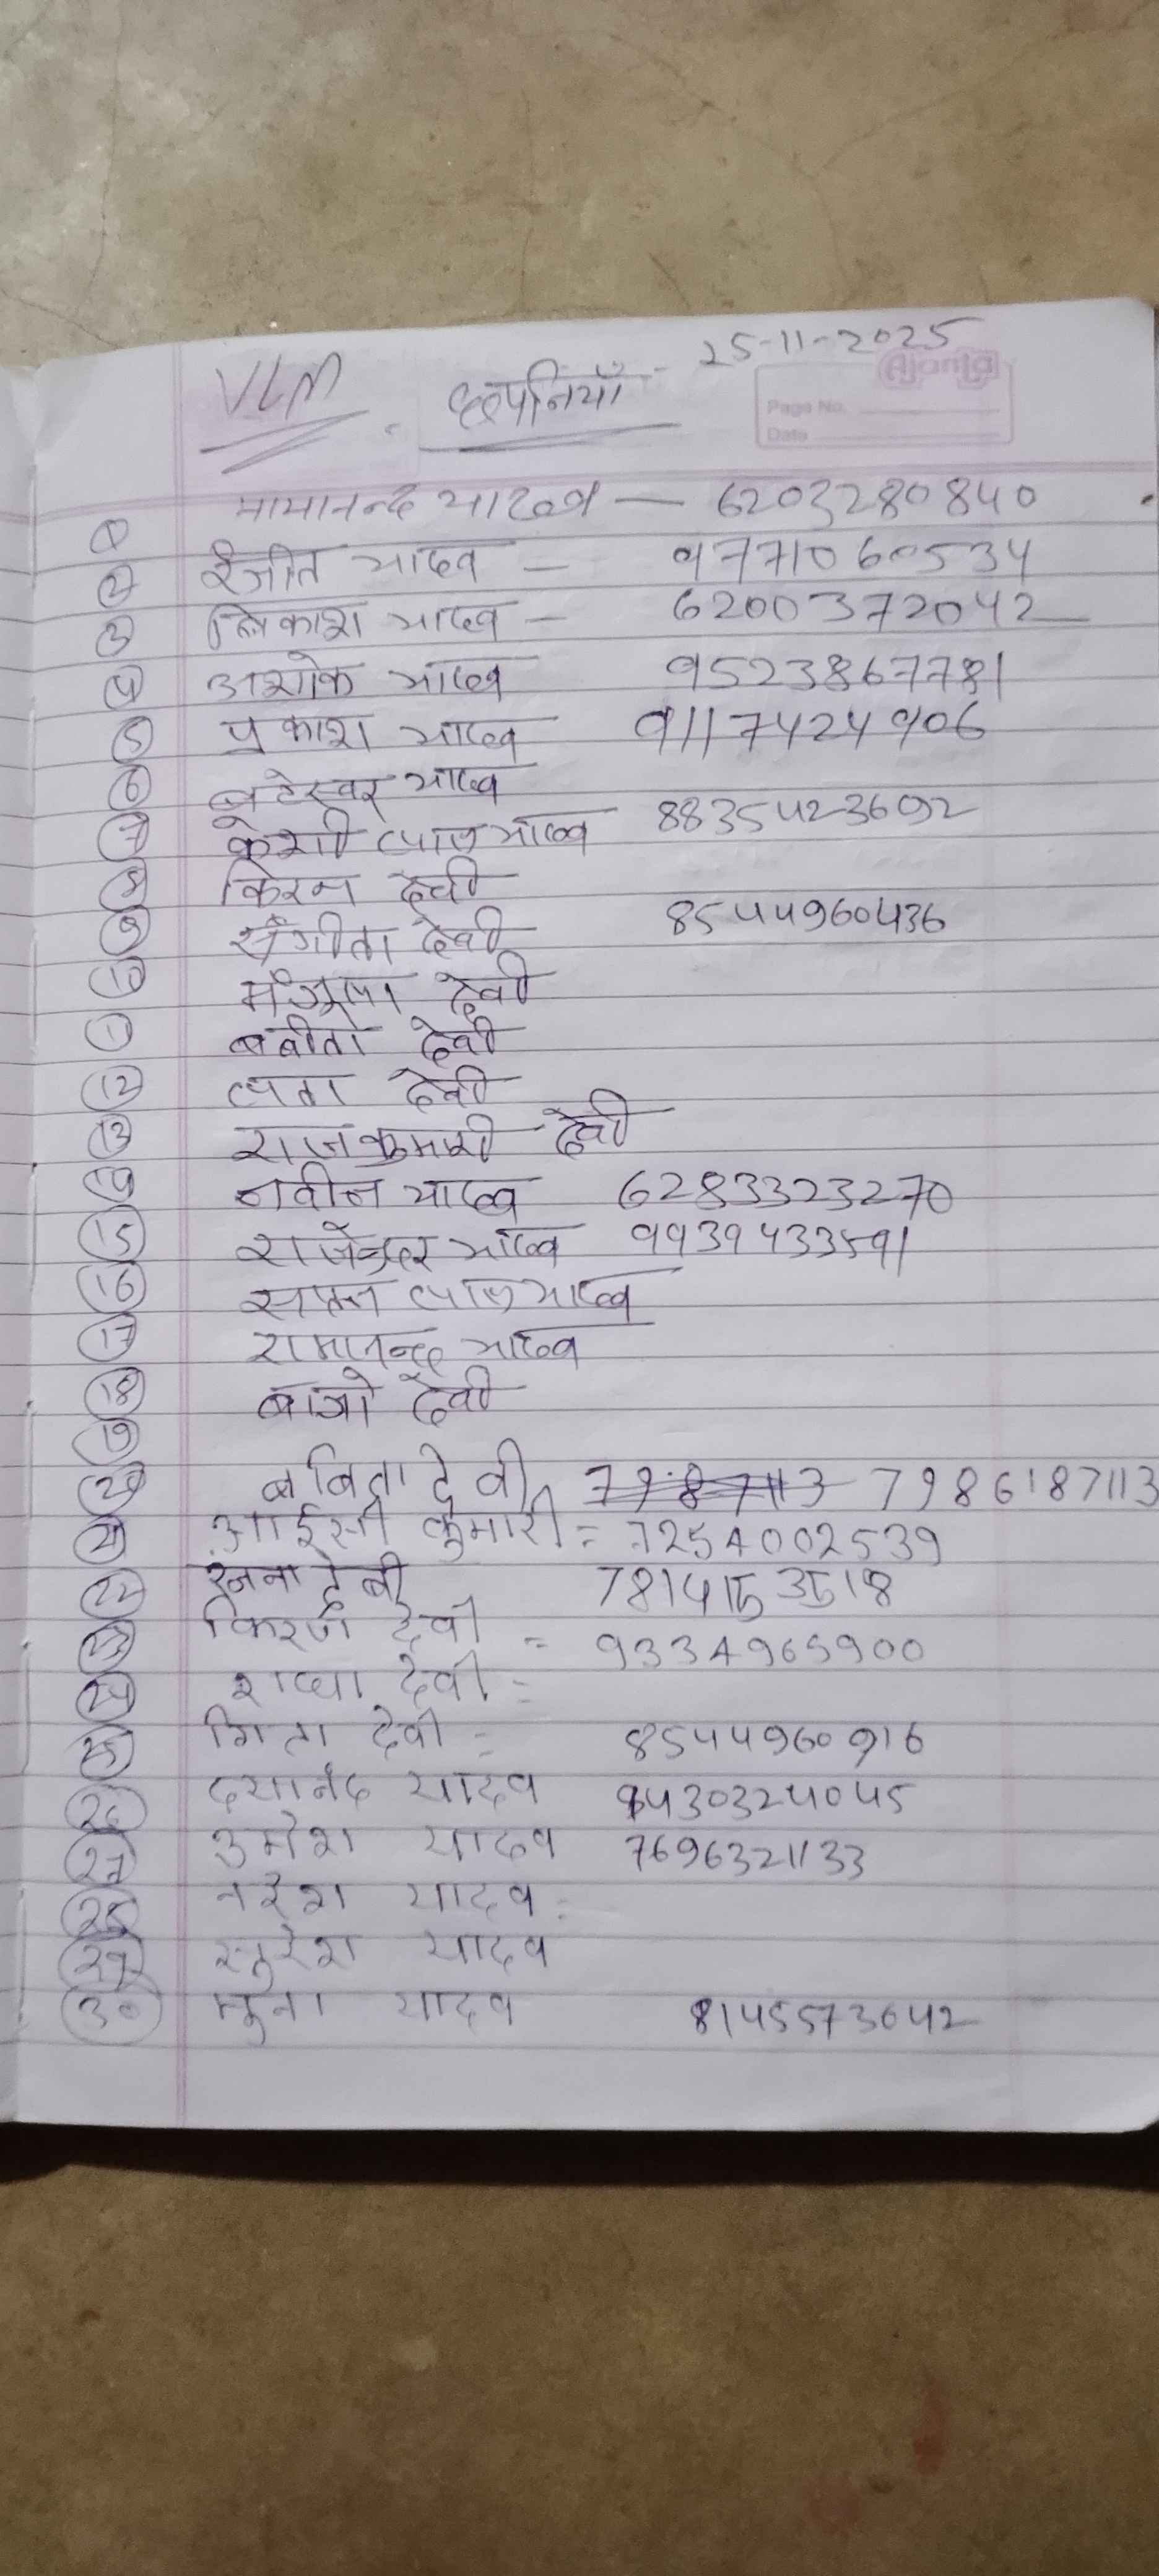 25-11-2025
Ajanta
VLM छपनियाँ
Page No.
Date
① मामानन्द यादव — 6203280840
② रंजीत यादव — 9771060534
③ विकाश यादव — 6200372042
④ अशोक यादव 9523867781
⑤ प्रकाश यादव 9117424906
⑥ बुटेस्वर यादव
⑦ केशी लाल यादव 8835423692
⑧ किरन देवी
⑨ संगीता देवी 8544960436
⑩ मंजुला देवी
⑪ बबीता देवी
⑫ लता देवी
⑬ राजकुमारी देवी
⑭ नवीन यादव 6283323270
⑮ राजेन्द्र यादव 9939433591
⑯ लाल यादव
⑰ रामानन्द यादव
⑱ बाजो देवी
⑲
⑳ बबिता देवी 7986187113
㉑ आईसी कुमारी = 7254002539
㉒ रंजना देवी 7814153518
㉓ किरण देवी = 9334965900
㉔ राधा देवी =
㉕ गिता देवी = 8544960916
㉖ दयानंद यादव 8430324045
㉗ उमेश यादव 7696321133
㉘ नरेश यादव =
㉙ सुरेश यादव
㉚ मुना यादव 8145573642